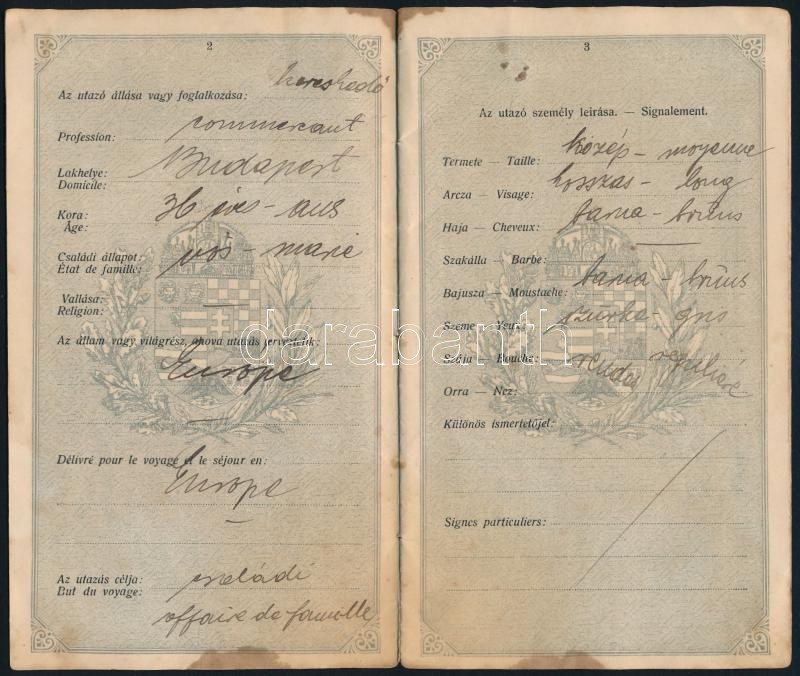 2
Az utazó állása vagy foglalkozása: kereskedő
Profession: commercant
Lakhelye: Budapest
Domicile:
Kora: 36 éves - ans
Âge:
Családi állapot: nős - marié
État de famille:
Vallása:
Religion:
Az állam vagy világrész, ahova utazás terveztetik:
Europe
Délivré pour le voyage et le séjour en:
Europe
Az utazás célja: családi
But du voyage:
affaire de famille
3
Az utazó személy leirása. — Signalement.
Termete — Taille: közép - moyenne
Arcza — Visage: hosszas - long
Haja — Cheveux: barna - brúns
Szakálla — Barbe: —
Bajusza — Moustache: barna - brúns
Szeme — Yeux: szürke - gris
Szája — Bouche: rendes régulière
Orra — Nez:
Különös ismertetőjel:
Signes particuliers:
darabanth